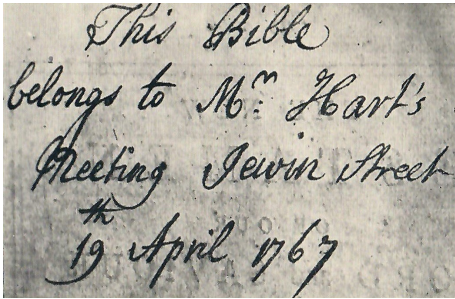 This Bible
belongs to Mr. Hart's
Meeting Jewin Street
19th April 1767